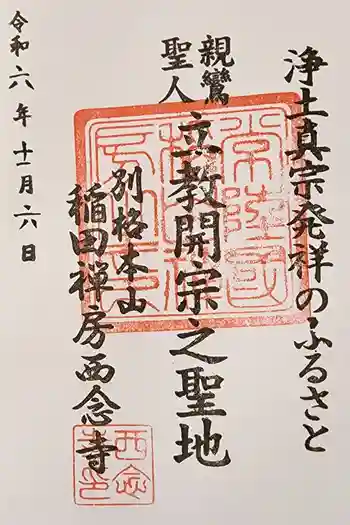 浄土真宗発祥のふるさと
親鸞
聖人
立教開宗之聖地
別格本山
稲田禅房西念寺
令和六年十一月六日
西念